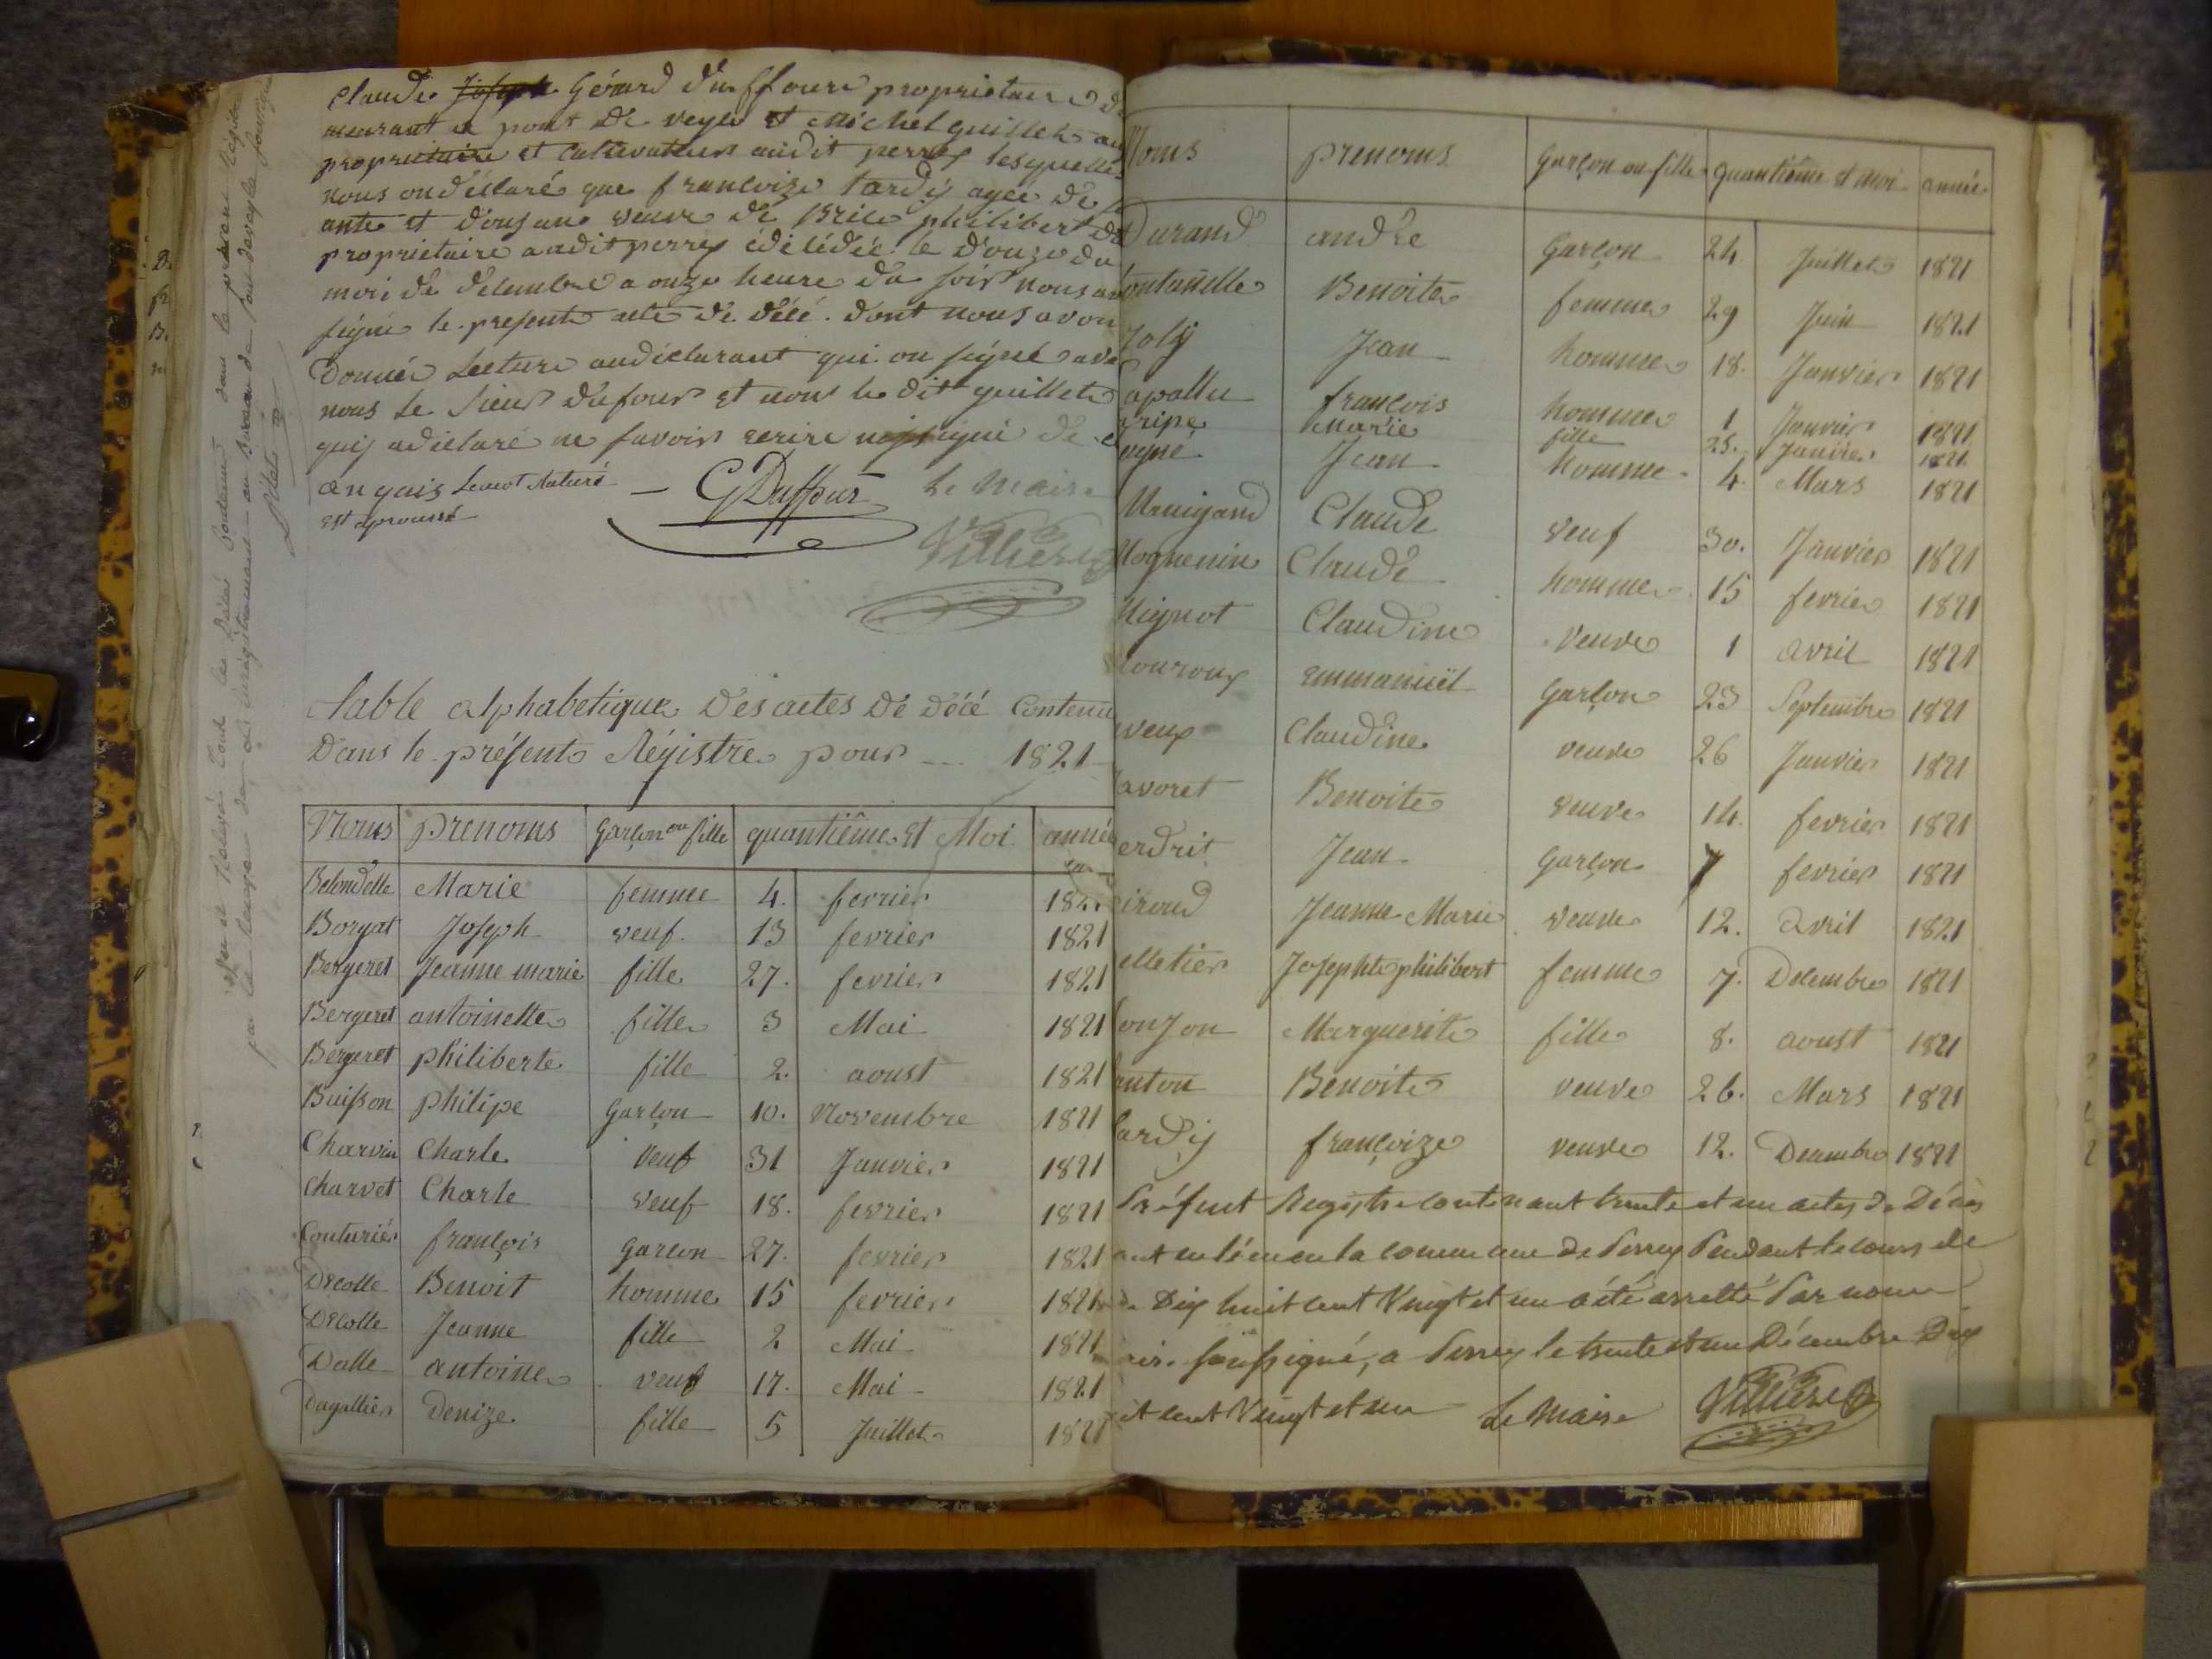 Claude Joseph Gérard duffour proprietaire de
meurant a pont de veyle et Michel guillet
propriétaire et cultivateur audit perrex lesquelle
nous on déclaré que francoize tardy agée de
ante et d'ous ans veuve de Brice philibert
proprietaire audit perrex édécédée le douze du
moi de décembre a onze heure du soir nous
signé le présente acte de décé. dont nous avon
Donnée Lecture audéclarant qui on signé avé
nous Le Sieur dufour et non le dit guillet
qui adéclaré ne savoir ecrire
angais Lemot Raturé — GDuffour Le Maire
est aprouvé
Villiere
Table alphabetique Des actes De décé Contenu
Dans le présente Régistre pour ... 1821
Noms prenoms Garçon ou fille quantiême et Moi année
Belondelle Marie femme 4. fevrier 182
Boryat Joseph veuf 13 fevrier 1821
Bergeret Jeanne marie fille 27. fevrier 1821
Bergeret antoinette fille 3 Mai 1821
Bergeret philiberte fille 2. aoust 1821
Buisson philipe Garçon 10. Novembre 1821
Charvin Charle veuf 31 Janvier 1821
Charvet Charle veuf 18. fevrier 1821
Couturiér françois Garçon 27. fevrier 1821
Decolle Benoit homme 15 fevrier 1821
Decolle Jeanne fille 2 Mai 1821
Dalle antoine veuf 17. Mai 1821
Dagallier Denize fille 5 Juillet 1821
Noms prenoms Garçon ou fille quantiême et moi année
Durand andre Garçon 24. Juillet 1821
ontanelle Benoite femme 29 Juin 1821
Joly Jean homme 18. Janvier 1821
apallu françois homme 1 Janvier 1821
gripe Marie fille 25. Janvier 1821
agné Jean homme 4. Mars 1821
Manigand Claude veuf 30. Janvier 1821
Moguenin Claude homme 15 fevrier 1821
Mignot Claudine veuve 1 avril 1821
ouroux Emmanuël Garçon 23 Septembre 1821
veux Claudine veuve 26 Janvier 1821
avoret Benoite veuve 14. fevrier 1821
erdrit Jean Garçon 7 fevrier 1821
iroud Jeanne Marie veuve 12. avril 1821
elletier Josephte philibert femme 7. Decembre 1821
onjon Marguerite fille 8. aoust 1821
anton Benoite veuve 26. Mars 1821
ardÿ françoize veuve 12. Decembre 1821
Présent Registre contenant trente et un actes de Décès
en la commune de Perrex Pendant le cours de
Dix huit cent Vingt et un a été arretté Par nous
aire soussigné, a Perrex le trente et un Décembre Dix
it cent Vingt et un Le Maire Villiere